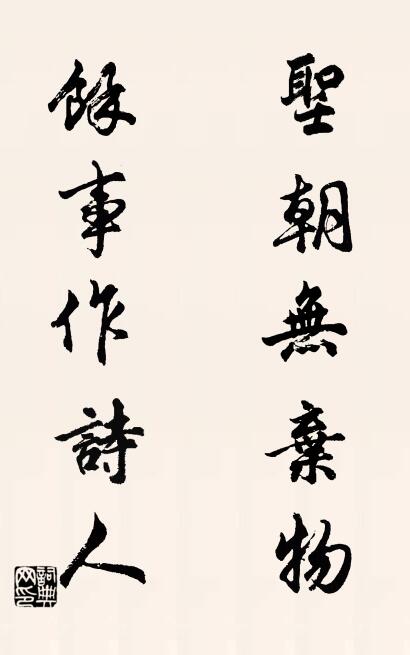 聖朝無棄物
餘事作詩人
詞典
网印